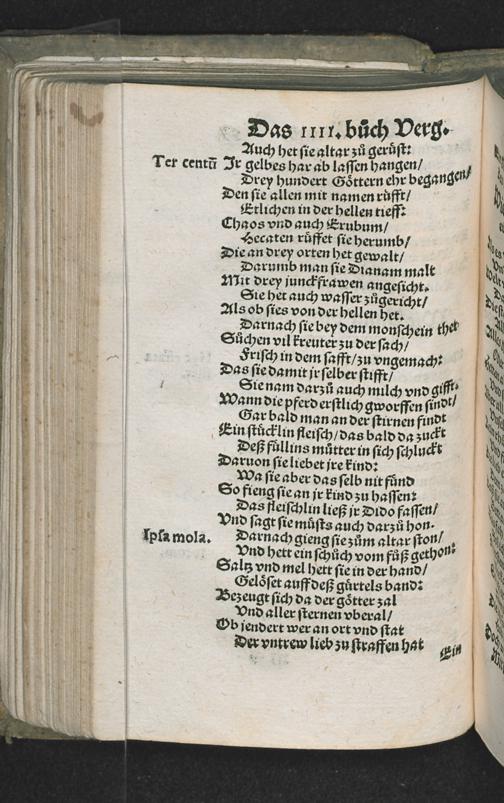 Das IIII. bůch Verg.
Auch het sie altar zů gerüst:
Ter centū Jr gelbes har ab lassen hangen/
Drey hundert Göttern ehr begangen/
Den sie allen mit namen rüfft/
Etlichen in der hellen tieff:
Chaos vnd auch Erubum/
Hecaten rüffet sie herumb/
Die an drey orten het gewalt/
Darumb man sie Dianam malt
Mit drey junckfrawen angesicht.
Sie het auch wasser zůgericht/
Als ob sies von der hellen het.
Darnach sie bey dem monschein thet
Sůchen vil kreuter zu der sach/
Frisch in dem safft/zu vngemach:
Das sie damit jr selber stifft/
Sie nam darzů auch milch vnd gifft.
Wann die pferd erstlich gworffen sindt/
Gar bald man an der stirnen findt
Ein stücklin fleisch/das bald da zuckt
Deß füllins můtter in sich schluckt
Daruon sie liebet jre kind:
Wa sie aber das selb nit fünd
So fieng sie an jr kind zu hassen:
Das fleischlin ließ jr Dido fassen/
Vnd sagt sie můsts auch darzů hon.
Ipsa mola. Darnach gieng sie zům altar ston/
Vnd hett ein schůch vom fůß gethon:
Saltz vnd mel hett sie in der hand/
Gelöset auff deß gürtels band:
Bezeugt sich da der götter zal
Vnd aller sternen vberal/
Ob jendert wer an ort vnd stat
Der vntrew lieb zu straffen hat
Ein